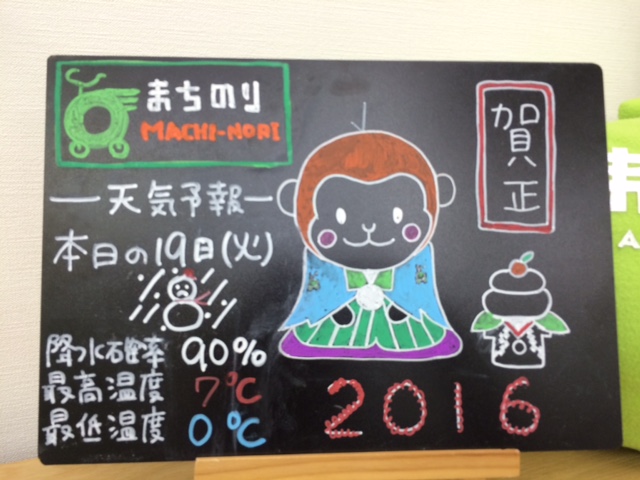 まちのり
MACHI-NORI
天気予報
本日の19日(火)
降水確率 90%
最高温度 7℃
最低温度 0℃
賀正
2016